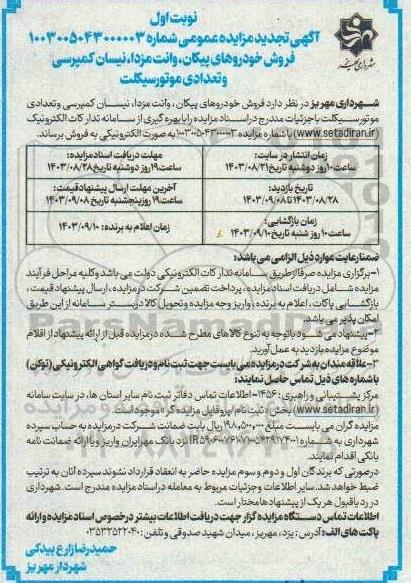 نوبت اول
آگهی تجدید مزایده عمومی شماره ۱۰۰۳۰۰۵۰۴۳۰۰۰۰۰۳
فروش خودروهای پیکان، وانت مزدا، نیسان کمپرسی
و تعدادی موتورسیکلت
شهرداری مهریز
شهرداری مهریز در نظر دارد فروش خودروهای پیکان، وانت مزدا، نیسان کمپرسی وتعدادی
موتورسیکلت با جزئیات مندرج در اسناد مزایده را با بهره گیری از سامانه تدارکات الکترونیک
(www.setadiran.ir) با شماره مزایده ۱۰۰۳۰۰۵۰۴۳۰۰۰۰۰۳ به صورت الکترونیکی به فروش برساند.
زمان انتشار در سایت:
ساعت ۱۰ روز دوشنبه تاریخ ۱۴۰۳/۰۸/۲۱
مهلت دریافت اسناد مزایده:
ساعت ۱۹ روز دوشنبه تاریخ ۱۴۰۳/۰۸/۲۸
تاریخ بازدید:
۱۴۰۳/۰۸/۲۸ تا ۱۴۰۳/۰۹/۰۸
آخرین مهلت ارسال پیشنهاد قیمت:
ساعت ۱۹ روز پنجشنبه تاریخ ۱۴۰۳/۰۹/۰۸
زمان بازگشایی:
ساعت ۱۰ روز شنبه تاریخ ۱۴۰۳/۰۹/۱۰
زمان اعلام به برنده: ۱۴۰۳/۰۹/۱۰
ضمنا رعایت موارد ذیل الزامی می باشد:
۱-برگزاری مزایده صرفا از طریق سامانه تدارکات الکترونیکی دولت می باشد وکلیه مراحل فرآیند
مزایده شامل دریافت اسناد مزایده، پرداخت تضمین شرکت در مزایده، ارسال پیشنهاد قیمت،
بازگشایی پاکات، اعلام به برنده، واریز وجه مزایده و تحویل کالا در بستر سامانه از این طریق
امکان پذیر می باشد.
۲-پیشنهاد می شود با توجه به تنوع کالاهای مطرح شده در مزایده قبل از ارائه پیشنهاد از اقلام
موضوع مزایده بازدید به عمل آورید.
۳-علاقه مندان به شرکت در مزایده می بایست جهت ثبت نام و دریافت گواهی الکترونیکی (توکن)
با شماره های ذیل تماس حاصل نمایند:
مرکز پشتیبانی و راهبری: ۱۴۵۶- اطلاعات تماس دفاتر ثبت نام سایر استان ها، در سایت سامانه
(www.setadiran.ir) بخش «ثبت نام/پروفایل مزایده گر» موجود است.
مزایده گران می بایست مبلغ ۱۹۸,۵۰۰,۰۰۰ ریال بابت ضمانت شرکت در مزایده به حساب سپرده
نزد بانک مهر ایران واریز و یا ارائه ضمانت نامه
بانکی اقدام نمایند.
درصورتی که برندگان اول و دوم و سوم مزایده حاضر به انعقاد قرارداد نشوند سپرده آنان به ترتیب
ضبط خواهد شد. سایر اطلاعات وجزئیات مربوط به معامله در اسناد مزایده مندرج است. شهرداری
در رد یا قبول هر یک از پیشنهادها مختار است.
اطلاعات تماس دستگاه مزایده گزار جهت دریافت اطلاعات بیشتر در خصوص اسناد مزایده و ارائه
پاکت های الف: آدرس: یزد، مهریز، میدان شهید صدوقی و تلفن: ۰۳۵۳۲۵۲۲۰۴۰
حمیدرضا زارع بیدکی
شهردار مهریز